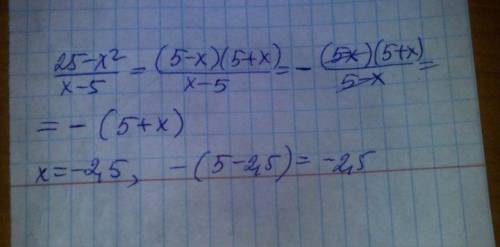 (25-x²)/(x-5) = ((5-x)(5+x))/(x-5) = - ((5-x)(5+x))/(5-x) =
= - (5+x)
x=-2,5, -(5-2,5)= -2,5